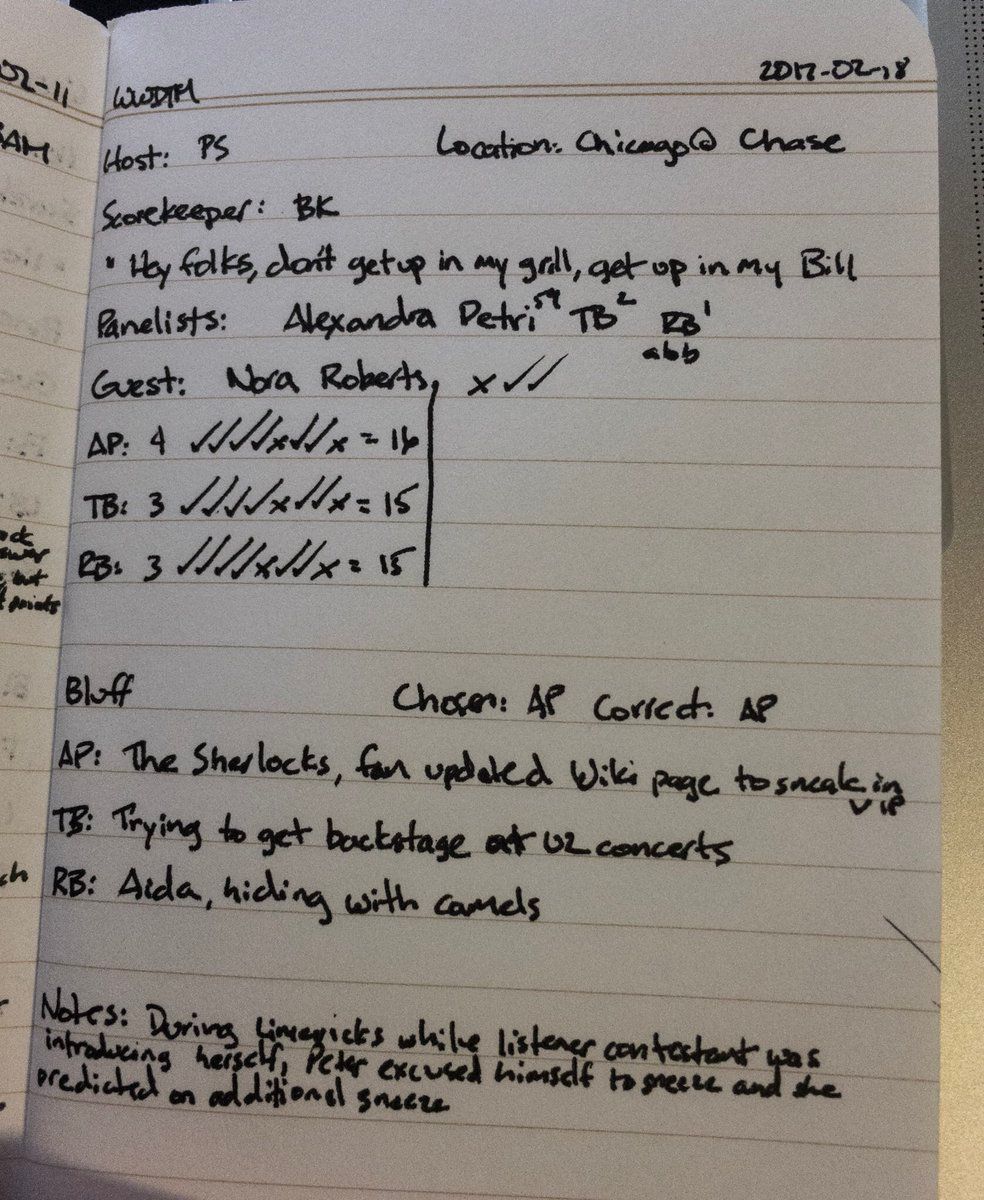 02-11
WWDTM 2017-02-18
Host: PS Location: Chicago@ Chase
Scorekeeper: BK
" Hey folks, don't get up in my grill, get up in my Bill
Panelists: Alexandra Petri TB² RB¹
abb
Guest: Nora Roberts, x✓✓
AP: 4 ✓✓✓✓x✓✓x = 16
TB: 3 ✓✓✓✓x✓✓x = 15
RB: 3 ✓✓✓✓x✓✓x = 15
but
points
Bluff Chosen: AP Correct: AP
AP: The Sherlocks, fan updated Wiki page to sneak in
VIP
TB: Trying to get backstage at U2 concerts
RB: Aida, hiding with camels
Notes: During Limericks while listener contestant was
introducing herself, Peter excused himself to sneeze and she
predicted an additional sneeze